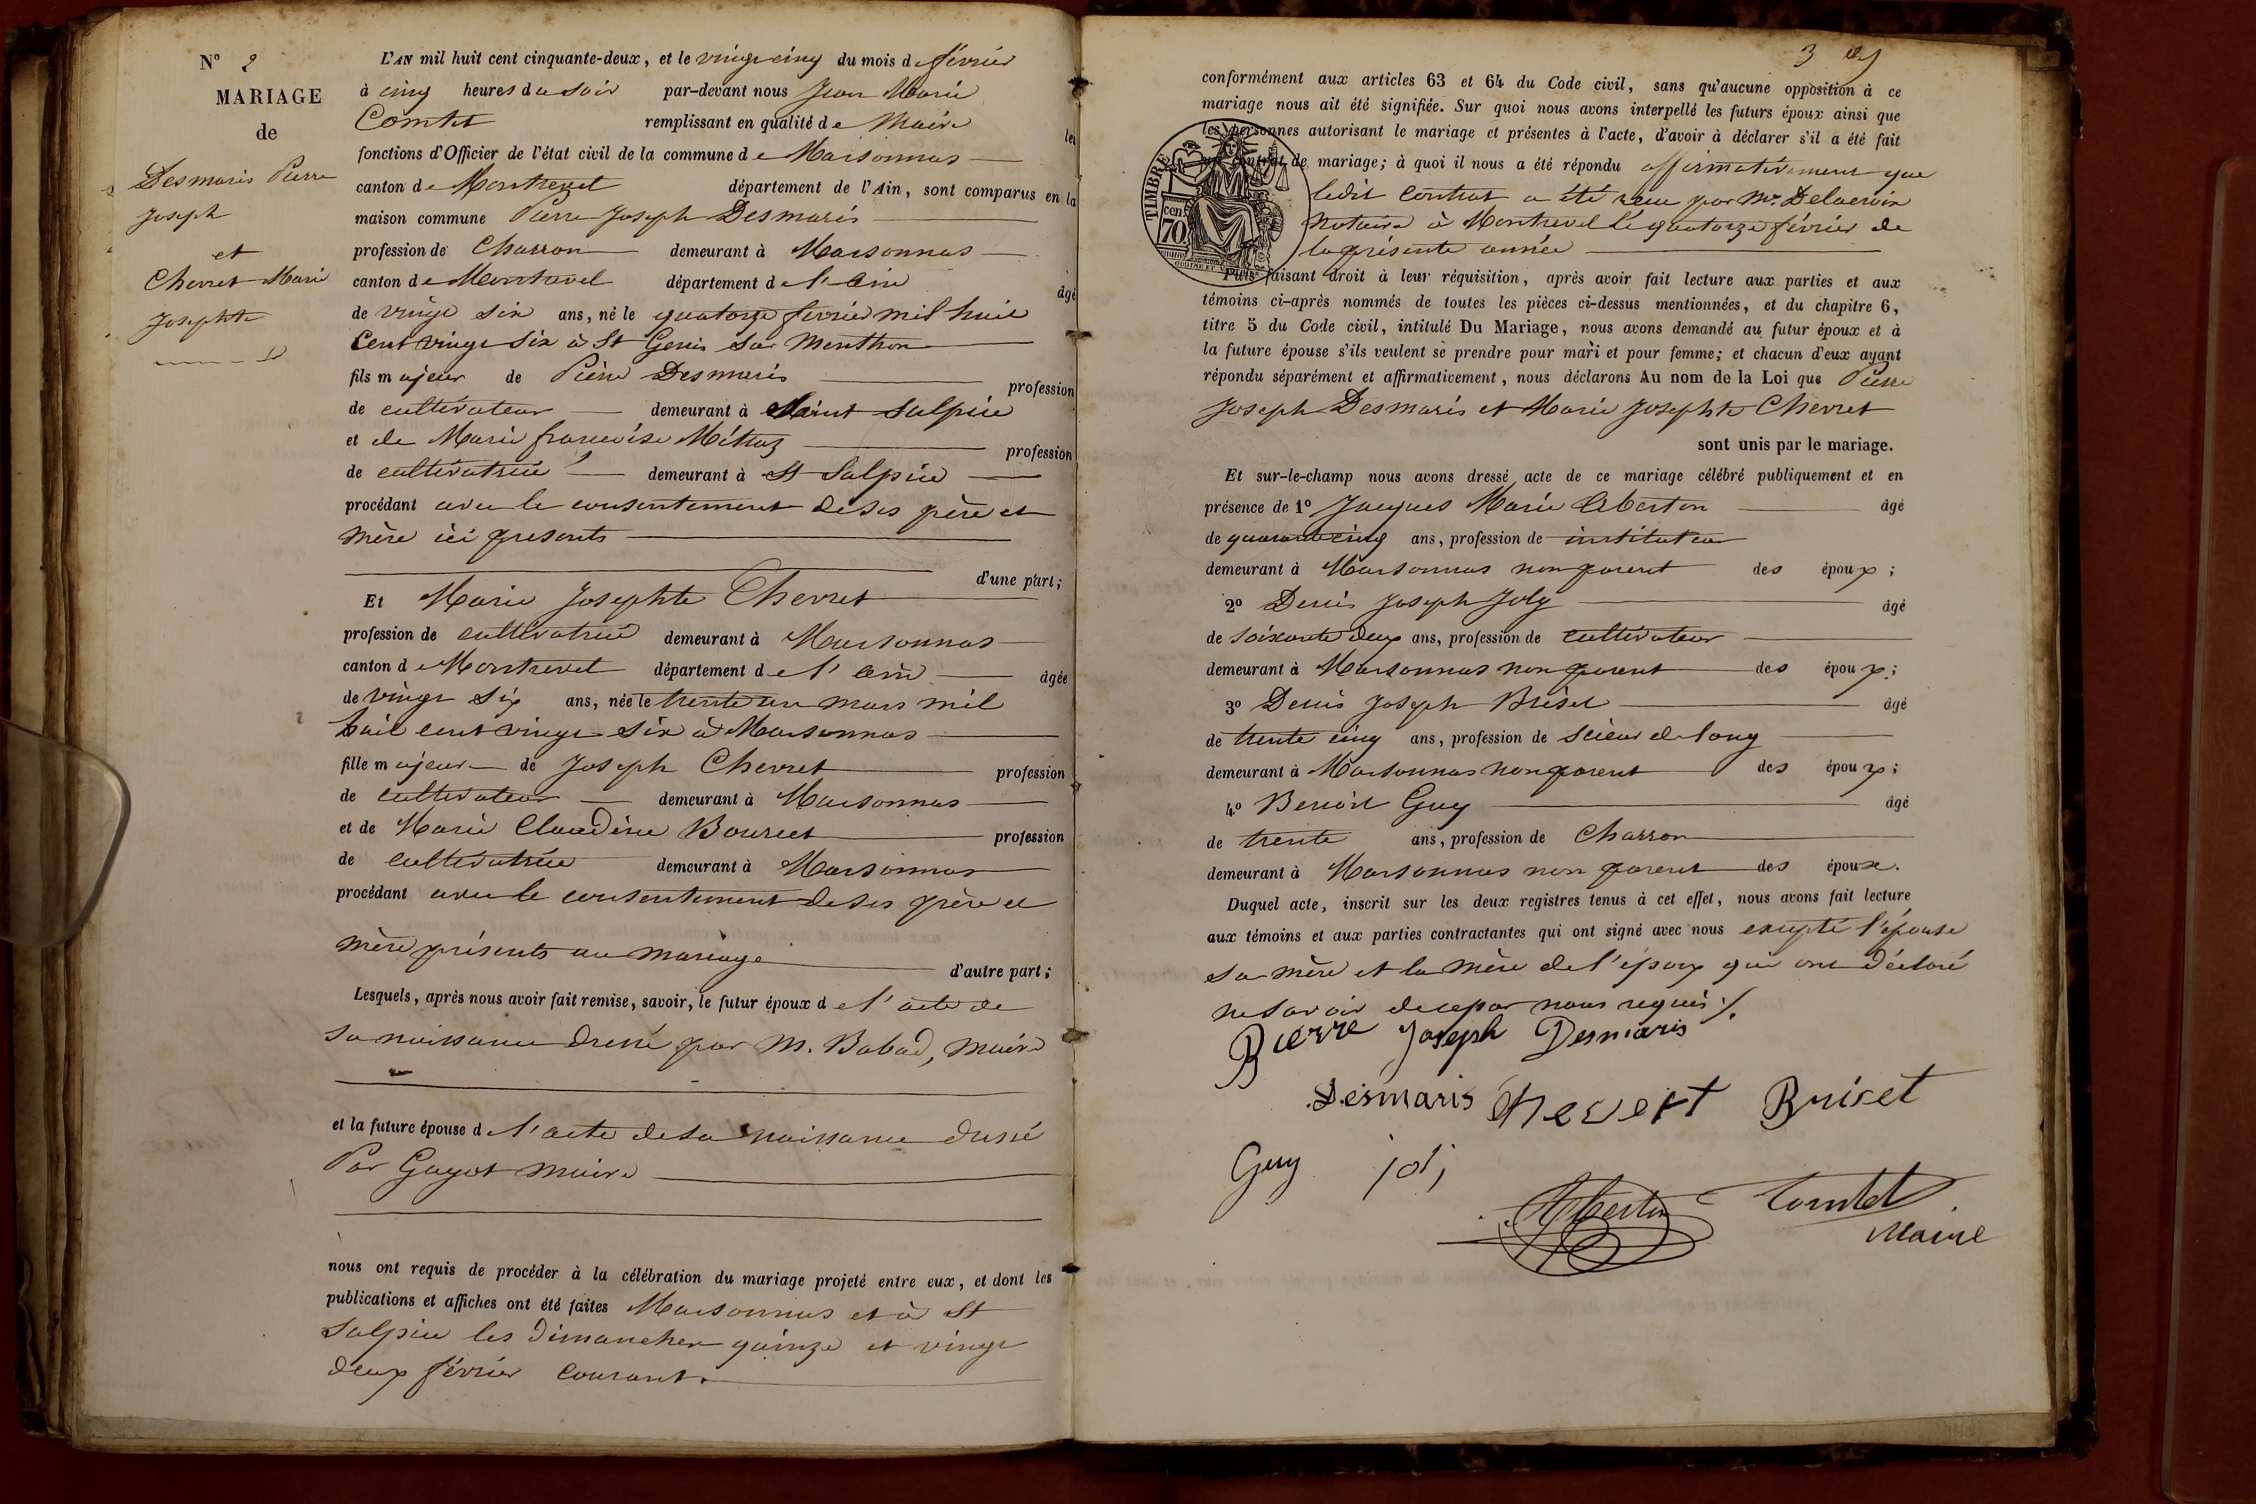 N° 2
MARIAGE
de
Desmaris Pierre
Joseph
et
Chevret Marie
Josephte
L'AN mil huit cent cinquante-deux, et le vingt cinq du mois de février
à cinq heures du soir par-devant nous Jean Marie
Comtet remplissant en qualité de Maire les
fonctions d'Officier de l'état civil de la commune de Marsonnas
canton de Montrevel département de l'Ain, sont comparus en la
maison commune Pierre Joseph Desmaris
profession de Charron demeurant à Marsonnas
canton de Montrevel département de l'Ain âgé
de vingt six ans, né le quatorze février mil huit
cent vingt six à St Genis sur Menthon
fils majeur de Pierre Desmaris profession
de cultivateur demeurant à Saint Sulpice
et de Marie françoise Métraz profession
de cultivatrice demeurant à St Sulpice
procédant avec le consentement de ses père et
mère ici presents
d'une part;
Et Marie Josephte Chevret
profession de cultivatrice demeurant à Marsonnas
canton de Montrevel département de l'Ain âgée
de vingt six ans, née le trente un mars mil
huit cent vingt six à Marsonnas
fille majeur de Joseph Chevret profession
de cultivateur demeurant à Marsonnas
et de Marie Claudine Bourcet profession
de cultivatrice demeurant à Marsonnas
procédant avec le consentement de ses père et
mère présents au mariage d'autre part;
Lesquels, après nous avoir fait remise, savoir, le futur époux de l'acte de
sa naissance dressé par M. Babad, maire
et la future épouse de l'acte de sa naissance dressé
Par Gayot maire
nous ont requis de procéder à la célébration du mariage projeté entre eux, et dont les
publications et affiches ont été faites Marsonnas et à St
Sulpice les dimanches quinze et vingt
deux février courant.
3
conformément aux articles 63 et 64 du Code civil, sans qu'aucune opposition à ce
mariage nous ait été signifiée. Sur quoi nous avons interpellé les futurs époux ainsi que
les personnes autorisant le mariage et présentes à l'acte, d'avoir à déclarer s'il a été fait
un contrat de mariage; à quoi il nous a été répondu affirmativement que
ledit contrat a été reçu par Mr. Delacroix
notaire à Montrevel le quatorze février de
la présente année
TIMBRE
cen.
70
Puis faisant droit à leur réquisition, après avoir fait lecture aux parties et aux
témoins ci-après nommés de toutes les pièces ci-dessus mentionnées, et du chapitre 6,
titre 5 du Code civil, intitulé Du Mariage, nous avons demandé au futur époux et à
la future épouse s'ils veulent se prendre pour mari et pour femme; et chacun d'eux ayant
répondu séparément et affirmativement, nous déclarons Au nom de la Loi que Pierre
Joseph Desmaris et Marie Josephte Chevret
sont unis par le mariage.
Et sur-le-champ nous avons dressé acte de ce mariage célébré publiquement et en
présence de 1° Jacques Marie Aberton âgé
de quarante cinq ans, profession de instituteur
demeurant à Marsonnas non parent des époux;
2° Denis Joseph Joly âgé
de soixante deux ans, profession de cultivateur
demeurant à Marsonnas non parent des époux;
3° Denis Joseph Briset âgé
de trente cinq ans, profession de scieur de long
demeurant à Marsonnas non parent des époux;
4° Benoit Guy âgé
de trente ans, profession de Charron
demeurant à Marsonnas non parent des époux.
Duquel acte, inscrit sur les deux registres tenus à cet effet, nous avons fait lecture
aux témoins et aux parties contractantes qui ont signé avec nous excepté l'épouse
sa mère et la mère de l'époux qui ont déclaré
ne savoir de ce par nous requis
Pierre Joseph Desmaris
Desmaris Chevert Briset
Guy joly
Aberton Comtet
Maire